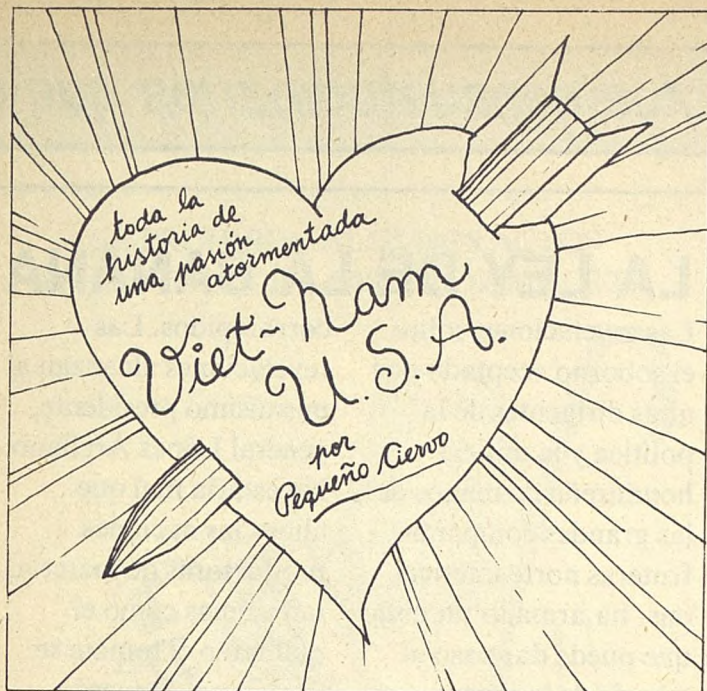 toda la
historia de
una pasión
atormentada
Viet-Nam
U.S.A.
por
Pequeño Ciervo